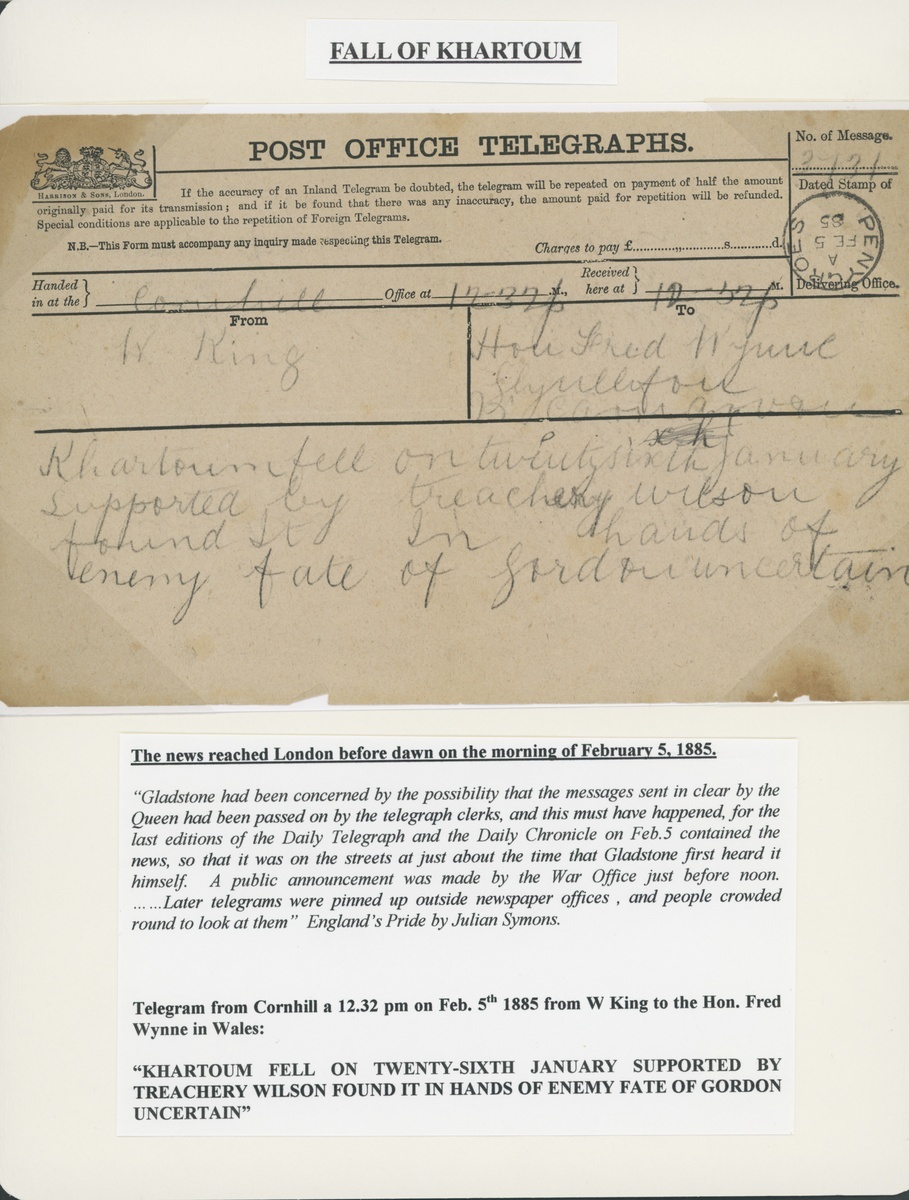 FALL OF KHARTOUM
HARRISON & SONS, London.
POST OFFICE TELEGRAPHS.
If the accuracy of an Inland Telegram be doubted, the telegram will be repeated on payment of half the amount
originally paid for its transmission; and if it be found that there was any inaccuracy, the amount paid for repetition will be refunded.
Special conditions are applicable to the repetition of Foreign Telegrams.
N.B.—This Form must accompany any inquiry made respecting this Telegram.
Charges to pay £ s. d.
No. of Message.
Dated Stamp of
PENY
FE 5
85
A
Delivering Office.
Handed in at the } Cornhill Office at 12-32p M.,
Received here at } 12-52p M.
From
W King
To
Hon Fred Wynne
Glynllifon
Khartoum fell on twenty sixth January
supported by treachery wilson
found It In hands of
enemy fate of Gordon uncertain
The news reached London before dawn on the morning of February 5, 1885.
“Gladstone had been concerned by the possibility that the messages sent in clear by the
Queen had been passed on by the telegraph clerks, and this must have happened, for the
last editions of the Daily Telegraph and the Daily Chronicle on Feb.5 contained the
news, so that it was on the streets at just about the time that Gladstone first heard it
himself. A public announcement was made by the War Office just before noon.
……Later telegrams were pinned up outside newspaper offices , and people crowded
round to look at them” England’s Pride by Julian Symons.
Telegram from Cornhill a 12.32 pm on Feb. 5th 1885 from W King to the Hon. Fred
Wynne in Wales:
“KHARTOUM FELL ON TWENTY-SIXTH JANUARY SUPPORTED BY
TREACHERY WILSON FOUND IT IN HANDS OF ENEMY FATE OF GORDON
UNCERTAIN”